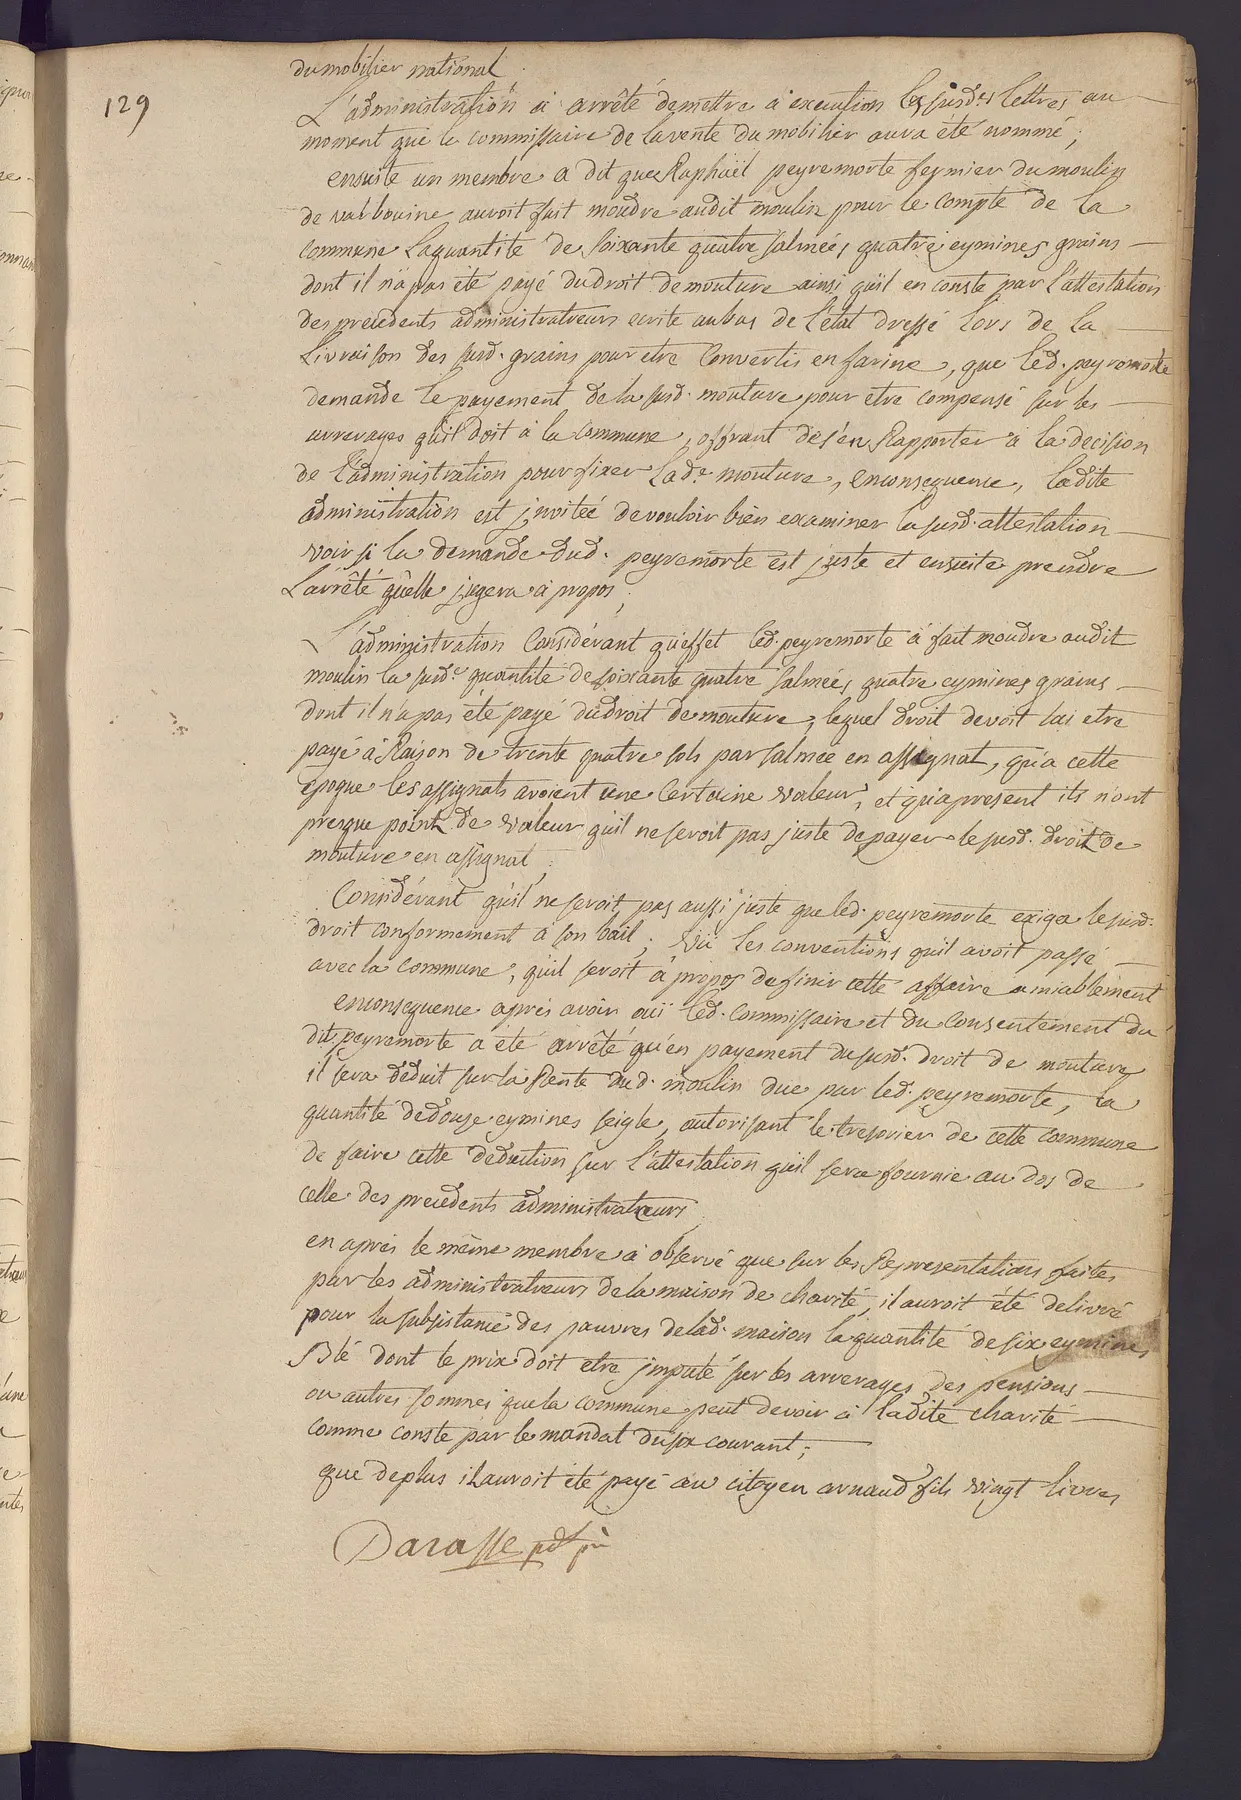 129
du mobilier national,
L'administration a arrêté demettre à execution les susd.es lettres au
moment que le commissaire de la vente du mobilier aura été nommé;
ensuite un membre a dit que Raphaël peyremorte fermier du moulin
de valbouine auroit fait moudre audit moulin pour le compte de la
commune la quantité de soixante quatre salmées quatre eymines grains
dont il n'a pas été payé du droit de mouture ainsi qu'il en conste par l'attestation
des precedents administrateurs ecrite au bas de l'état dressé lors de la
livraison des susd. grains pour etre convertis en farine, que led. peyremorte
demande le payement de la susd. mouture pour etre compensé sur les
arrerages qu'il doit à la commune, offrant de s'en Rapporter à la decision
de l'administration pour fixer lad.e mouture, enconsequence, ladite
administration est jnvitée de vouloir bien examiner la susd. attestation
voir si la demande dud. peyremorte est juste et ensuite prendre
L'arrêté qu'elle jugera à propos;
L'administration Considérant qu'effet led. peyremorte à fait moudre audit
moulin la susd.e quantité de soixante quatre salmées quatre eymines grains
dont il n'a pas été payé du droit de mouture, lequel droit devoit lui etre
payé à Raison de trente quatre sols par salmée en assignat, qu'a cette
epoque les assignats avoient une Certaine valeur, et qu'apresent ils n'ont
presque point de valeur qu'il ne seroit pas juste de payer le susd. droit de
mouture en assignat,
Considérant qu'il ne seroit pas aussi juste que led. peyremorte exigea le susd.
droit conformement à son bail; vû les conventions qu'il avoit passé
avec la commune, qu'il seroit à propos de finir cette affaire amiablement
enconsequence après avoir oüi led. commissaire et du consentement du
dit peyremorte a été arrêté qu'en payement du susd. droit de mouture
il sera déduit sur la Rente dud. moulin due par led. peyremorte, la
quantité de douse eymines seigle, autorisant le tresorier de cette commune
de faire cette deduction sur l'attestation qu'il sera fournie au dos de
celle des precedents administrateurs,
en après le même membre à observé que sur les Representations faites
par les administrateurs de la maison de charité, il auroit été delivré
pour la subsistance des pauvres de lad. maison la quantité de six eymines
Blé dont le prix doit etre jmputé sur les arrerages des pensions
ou autres sommes que la commune peut devoir à ladite charité
comme conste par le mandat du six courant;
que deplus il auroit été payé au citoyen arnaud fils vingt livres
Darasse pdt